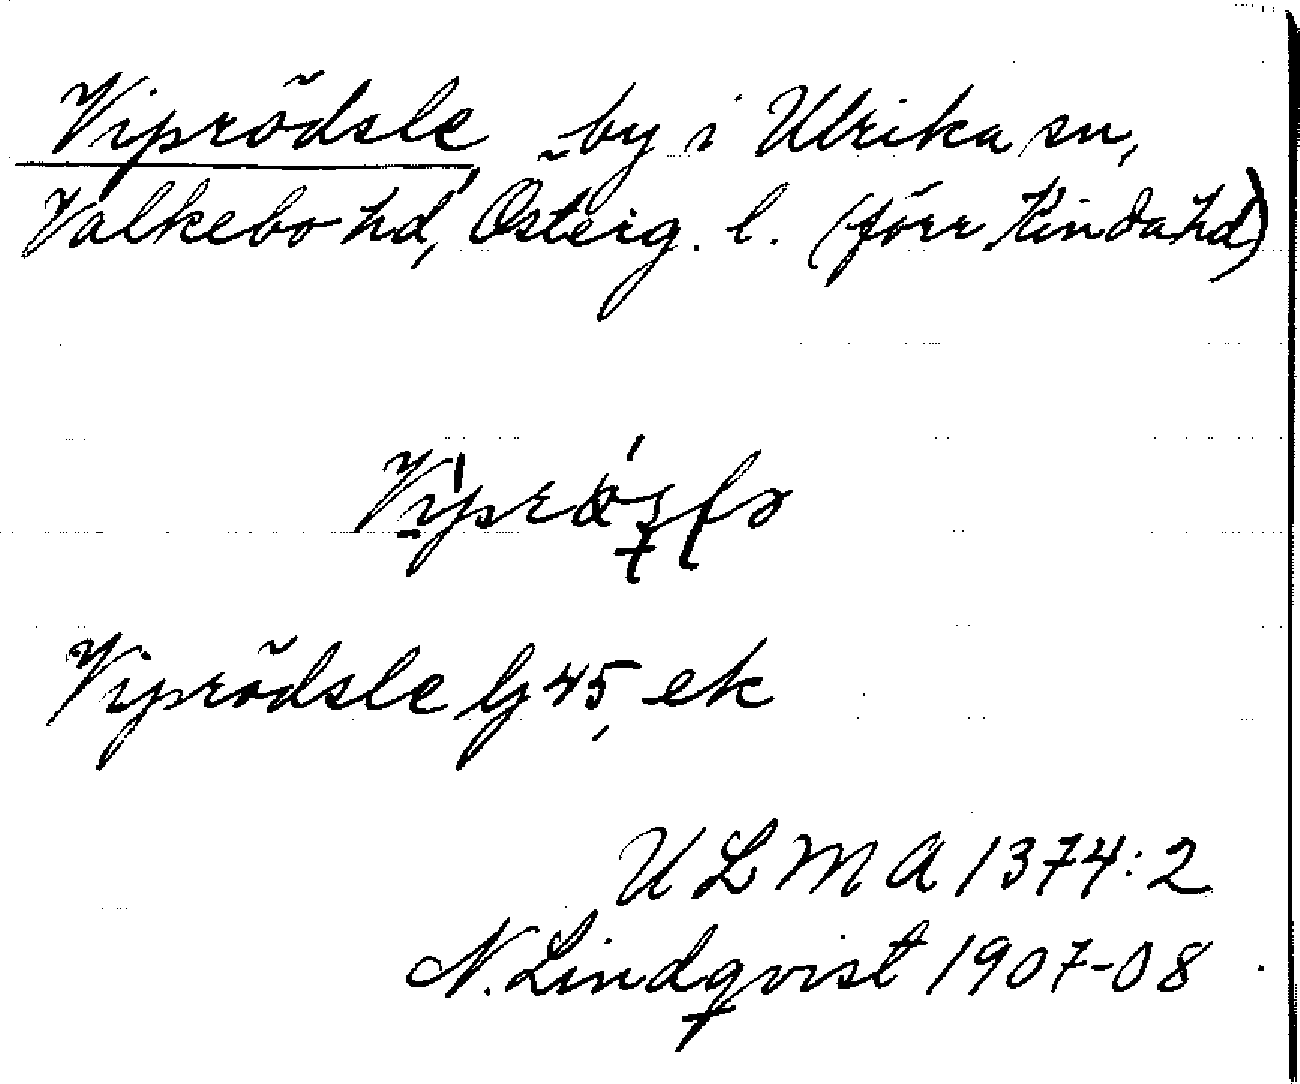 Viprödsle by i Ulrika sn,
Valkebo hd, Österg. l. (förr Kinda hd)
Viprödsle lj 45, ek
ULMA 1374:2
N. Lindqvist 1907-08